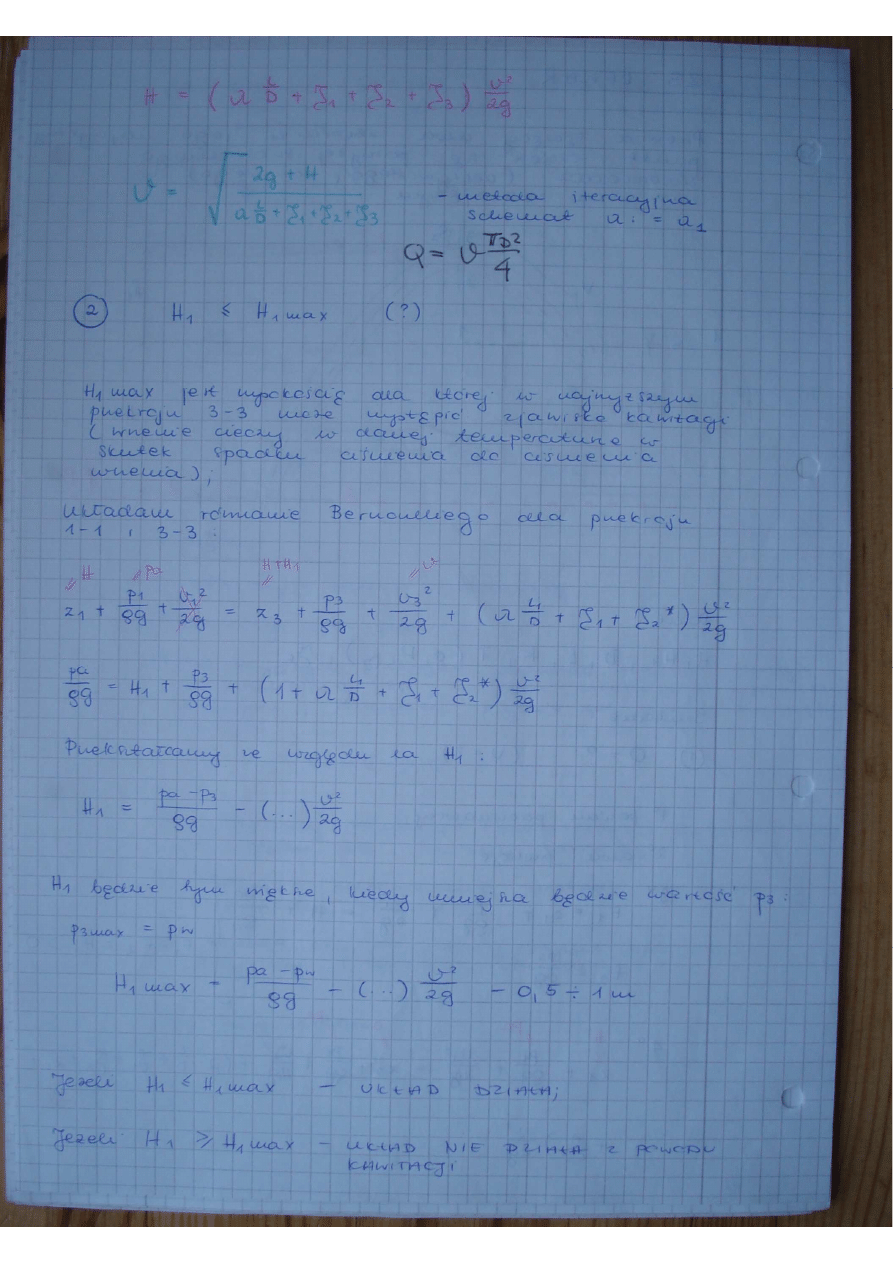 H = (λ L/D + ζ₁ + ζ₂ + ζ₃) v²/2g
v = √(2g + H / (λ L/D + ζ₁ + ζ₂ + ζ₃)) - metoda iteracyjna
schemat λ. = λ₁
Q = v πD²/4
② H₁ ≤ H₁max (?)
H₁max jest wysokością dla której w najwyższym
przekroju 3-3 może wystąpić zjawisko kawitacji
(wrzenie cieczy w danej temperaturze w
skutek spadku ciśnienia do ciśnienia
wrzenia);
Układam równanie Bernoulliego dla przekroju
1-1 i 3-3.
H pa H+H₁ v
z₁ + p₁/ρg + v₁²/2g = z₃ + p₃/ρg + v₃²/2g + (λ L₁/D + ζ₁ + ζ₂*) v²/2g
pa/ρg = H₁ + p₃/ρg + (1 + λ L₁/D + ζ₁ + ζ₂*) v²/2g
Przekształcamy ze względu na H₁:
H₁ = pa - p₃/ρg - (...) v²/2g
H₁ będzie tym większe, kiedy mniejsza będzie wartość p₃.
p₃max = pw
H₁max - pa - pw/ρg - (...) v²/2g - 0,5 ÷ 1m
Jeżeli H₁ ≤ H₁max - UKŁAD DZIAŁA;
Jeżeli H₁ ≥ H₁max - UKŁAD NIE DZIAŁA Z POWODU
KAWITACJI